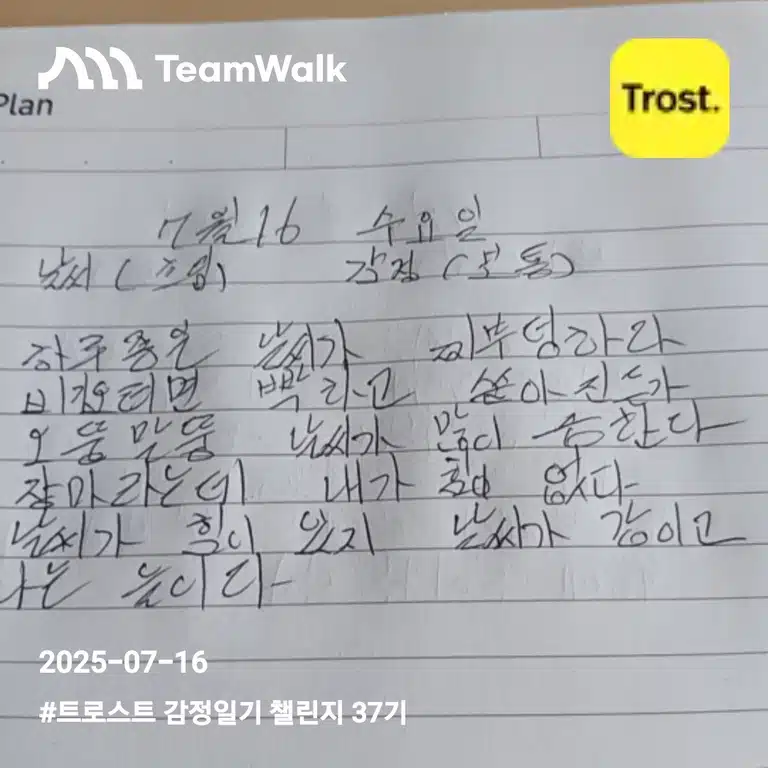 TeamWalk
Trost.
Plan
7월 16 수요일
날씨 (흐림) 감정 (보통)
하루종일 날씨가 찌부덩하라
비가오려면 빡 라고 쏟아진는가
오뚱말뚱 날씨가 많이 습한다
잘마라는데 내가 힘 없다
날씨가 흑이 있지 날씨가 감이고
나는 을이다
2025-07-16
#트로스트 감정일기 챌린지 37기